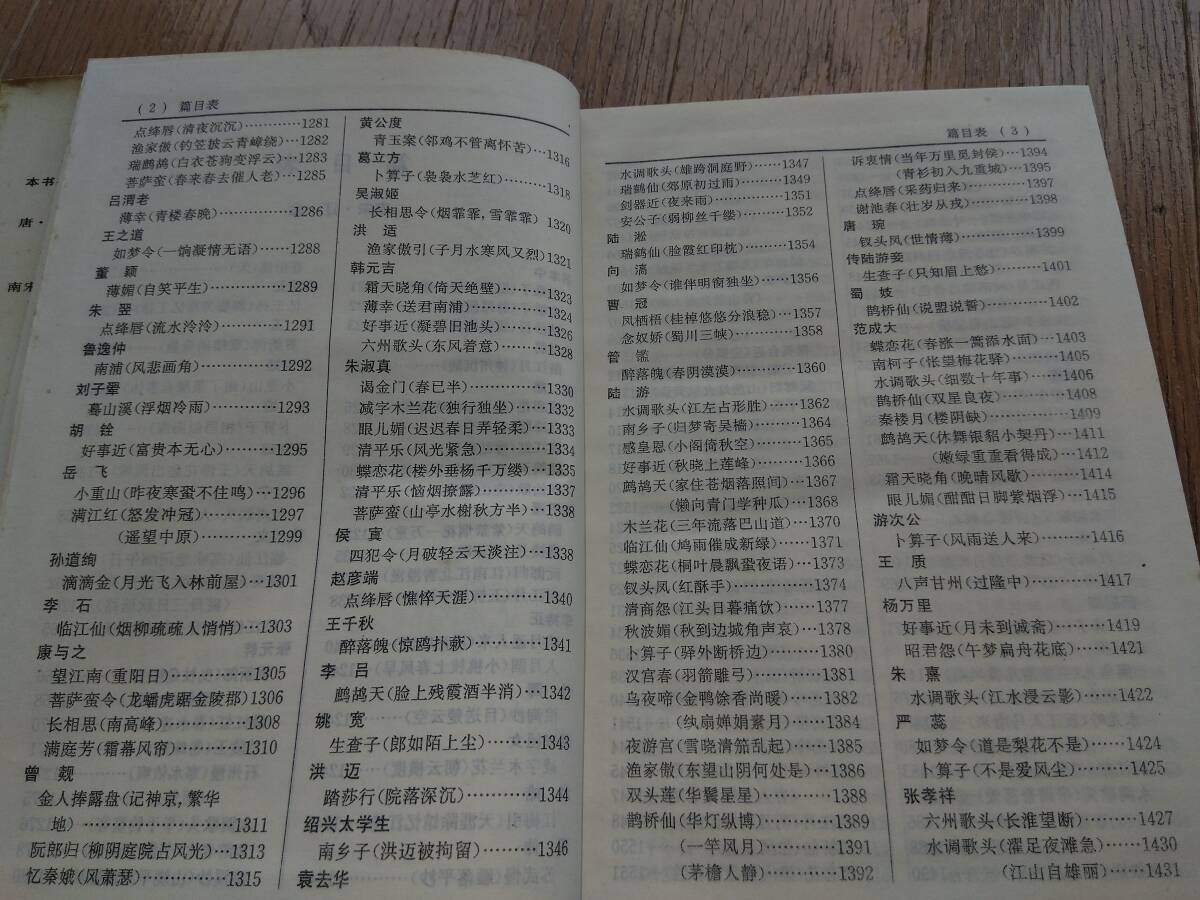 (2) 篇目表
点绛唇(清夜沉沉)…………1281
渔家傲(钓笠披云青嶂绕)…1282
瑞鹧鸪(白衣苍狗变浮云)…1283
菩萨蛮(春来春去催人老)…1285
吕渭老
薄幸(青楼春晚)……………1286
王之道
如梦令(一饷凝情无语)……1288
董 颖
薄媚(自笑平生)……………1289
朱 翌
点绛唇(流水泠泠)…………1291
鲁逸仲
南浦(风悲画角)……………1292
刘子翚
蓦山溪(浮烟冷雨)…………1293
胡 铨
好事近(富贵本无心)………1295
岳 飞
小重山(昨夜寒蛩不住鸣)…1296
满江红(怒发冲冠)…………1297
(遥望中原)…………1299
孙道绚
滴滴金(月光飞入林前屋)…1301
李 石
临江仙(烟柳疏疏人悄悄)…1303
康与之
望江南(重阳日)……………1305
菩萨蛮令(龙蟠虎踞金陵郡)1306
长相思(南高峰)……………1308
满庭芳(霜幕风帘)…………1310
曾 觌
金人捧露盘(记神京,繁华
地)……………………1311
阮郎归(柳阴庭院占风光)…1313
忆秦娥(风萧瑟)……………1315
黄公度
青玉案(邻鸡不管离怀苦)…1316
葛立方
卜算子(袅袅水芝红)………1318
吴淑姬
长相思令(烟霏霏,雪霏霏)1320
洪 适
渔家傲引(子月水寒风又烈)1321
韩元吉
霜天晓角(倚天绝壁)………1323
薄幸(送君南浦)……………1324
好事近(凝碧旧池头)………1326
六州歌头(东风着意)………1328
朱淑真
谒金门(春已半)……………1330
减字木兰花(独行独坐)……1332
眼儿媚(迟迟春日弄轻柔)…1333
清平乐(风光紧急)…………1334
蝶恋花(楼外垂杨千万缕)…1335
清平乐(恼烟撩露)…………1337
菩萨蛮(山亭水榭秋方半)…1338
侯 寘
四犯令(月破轻云天淡注)…1338
赵彦端
点绛唇(憔悴天涯)…………1340
王千秋
醉落魄(惊鸥扑蔌)…………1341
李 吕
鹧鸪天(脸上残霞酒半消)…1342
姚 宽
生查子(郎如陌上尘)………1343
洪 迈
踏莎行(院落深沉)…………1344
绍兴太学生
南乡子(洪迈被拘留)………1346
袁去华
篇目表 (3)
水调歌头(雄跨洞庭野)……1347
瑞鹤仙(郊原初过雨)………1349
剑器近(夜来雨)……………1351
安公子(弱柳丝千缕)………1352
陆 淞
瑞鹤仙(脸霞红印枕)………1354
向 滈
如梦令(谁伴明窗独坐)……1356
曹 冠
凤栖梧(桂棹悠悠分浪稳)…1357
念奴娇(蜀川三峡)…………1358
管 鉴
醉落魄(春阴漠漠)…………1360
陆 游
水调歌头(江左占形胜)……1362
南乡子(归梦寄吴樯)………1364
感皇恩(小阁倚秋空)………1365
好事近(秋晓上莲峰)………1366
鹧鸪天(家住苍烟落照间)…1367
(懒向青门学种瓜)…1368
木兰花(三年流落巴山道)…1370
临江仙(鸠雨催成新绿)……1371
蝶恋花(桐叶晨飘蛩夜语)…1373
钗头凤(红酥手)……………1374
清商怨(江头日暮痛饮)……1377
秋波媚(秋到边城角声哀)…1378
卜算子(驿外断桥边)………1380
汉宫春(羽箭雕弓)…………1381
乌夜啼(金鸭馀香尚暖)……1382
(纨扇婵娟素月)……1384
夜游宫(雪晓清笳乱起)……1385
渔家傲(东望山阴何处是)…1386
双头莲(华鬓星星)…………1388
鹊桥仙(华灯纵博)…………1389
(一竿风月)…………1391
(茅檐人静)…………1392
诉衷情(当年万里觅封侯)…1394
(青衫初入九重城)…1395
点绛唇(采药归来)…………1397
谢池春(壮岁从戎)…………1398
唐 琬
钗头凤(世情薄)……………1399
传陆游妾
生查子(只知眉上愁)………1401
蜀 妓
鹊桥仙(说盟说誓)…………1402
范成大
蝶恋花(春涨一篙添水面)…1403
南柯子(怅望梅花驿)………1405
水调歌头(细数十年事)……1406
鹊桥仙(双星良夜)…………1408
秦楼月(楼阴缺)……………1409
鹧鸪天(休舞银貂小契丹)…1411
(嫩绿重重看得成)…1412
霜天晓角(晚晴风歇)………1414
眼儿媚(酣酣日脚紫烟浮)…1415
游次公
卜算子(风雨送人来)………1416
王 质
八声甘州(过隆中)…………1417
杨万里
好事近(月未到诚斋)………1419
昭君怨(午梦扁舟花底)……1421
朱 熹
水调歌头(江水浸云影)……1422
严 蕊
如梦令(道是梨花不是)……1424
卜算子(不是爱风尘)………1425
张孝祥
六州歌头(长淮望断)………1427
水调歌头(濯足夜滩急)……1430
(江山自雄丽)……1431
本书
唐·
南宋